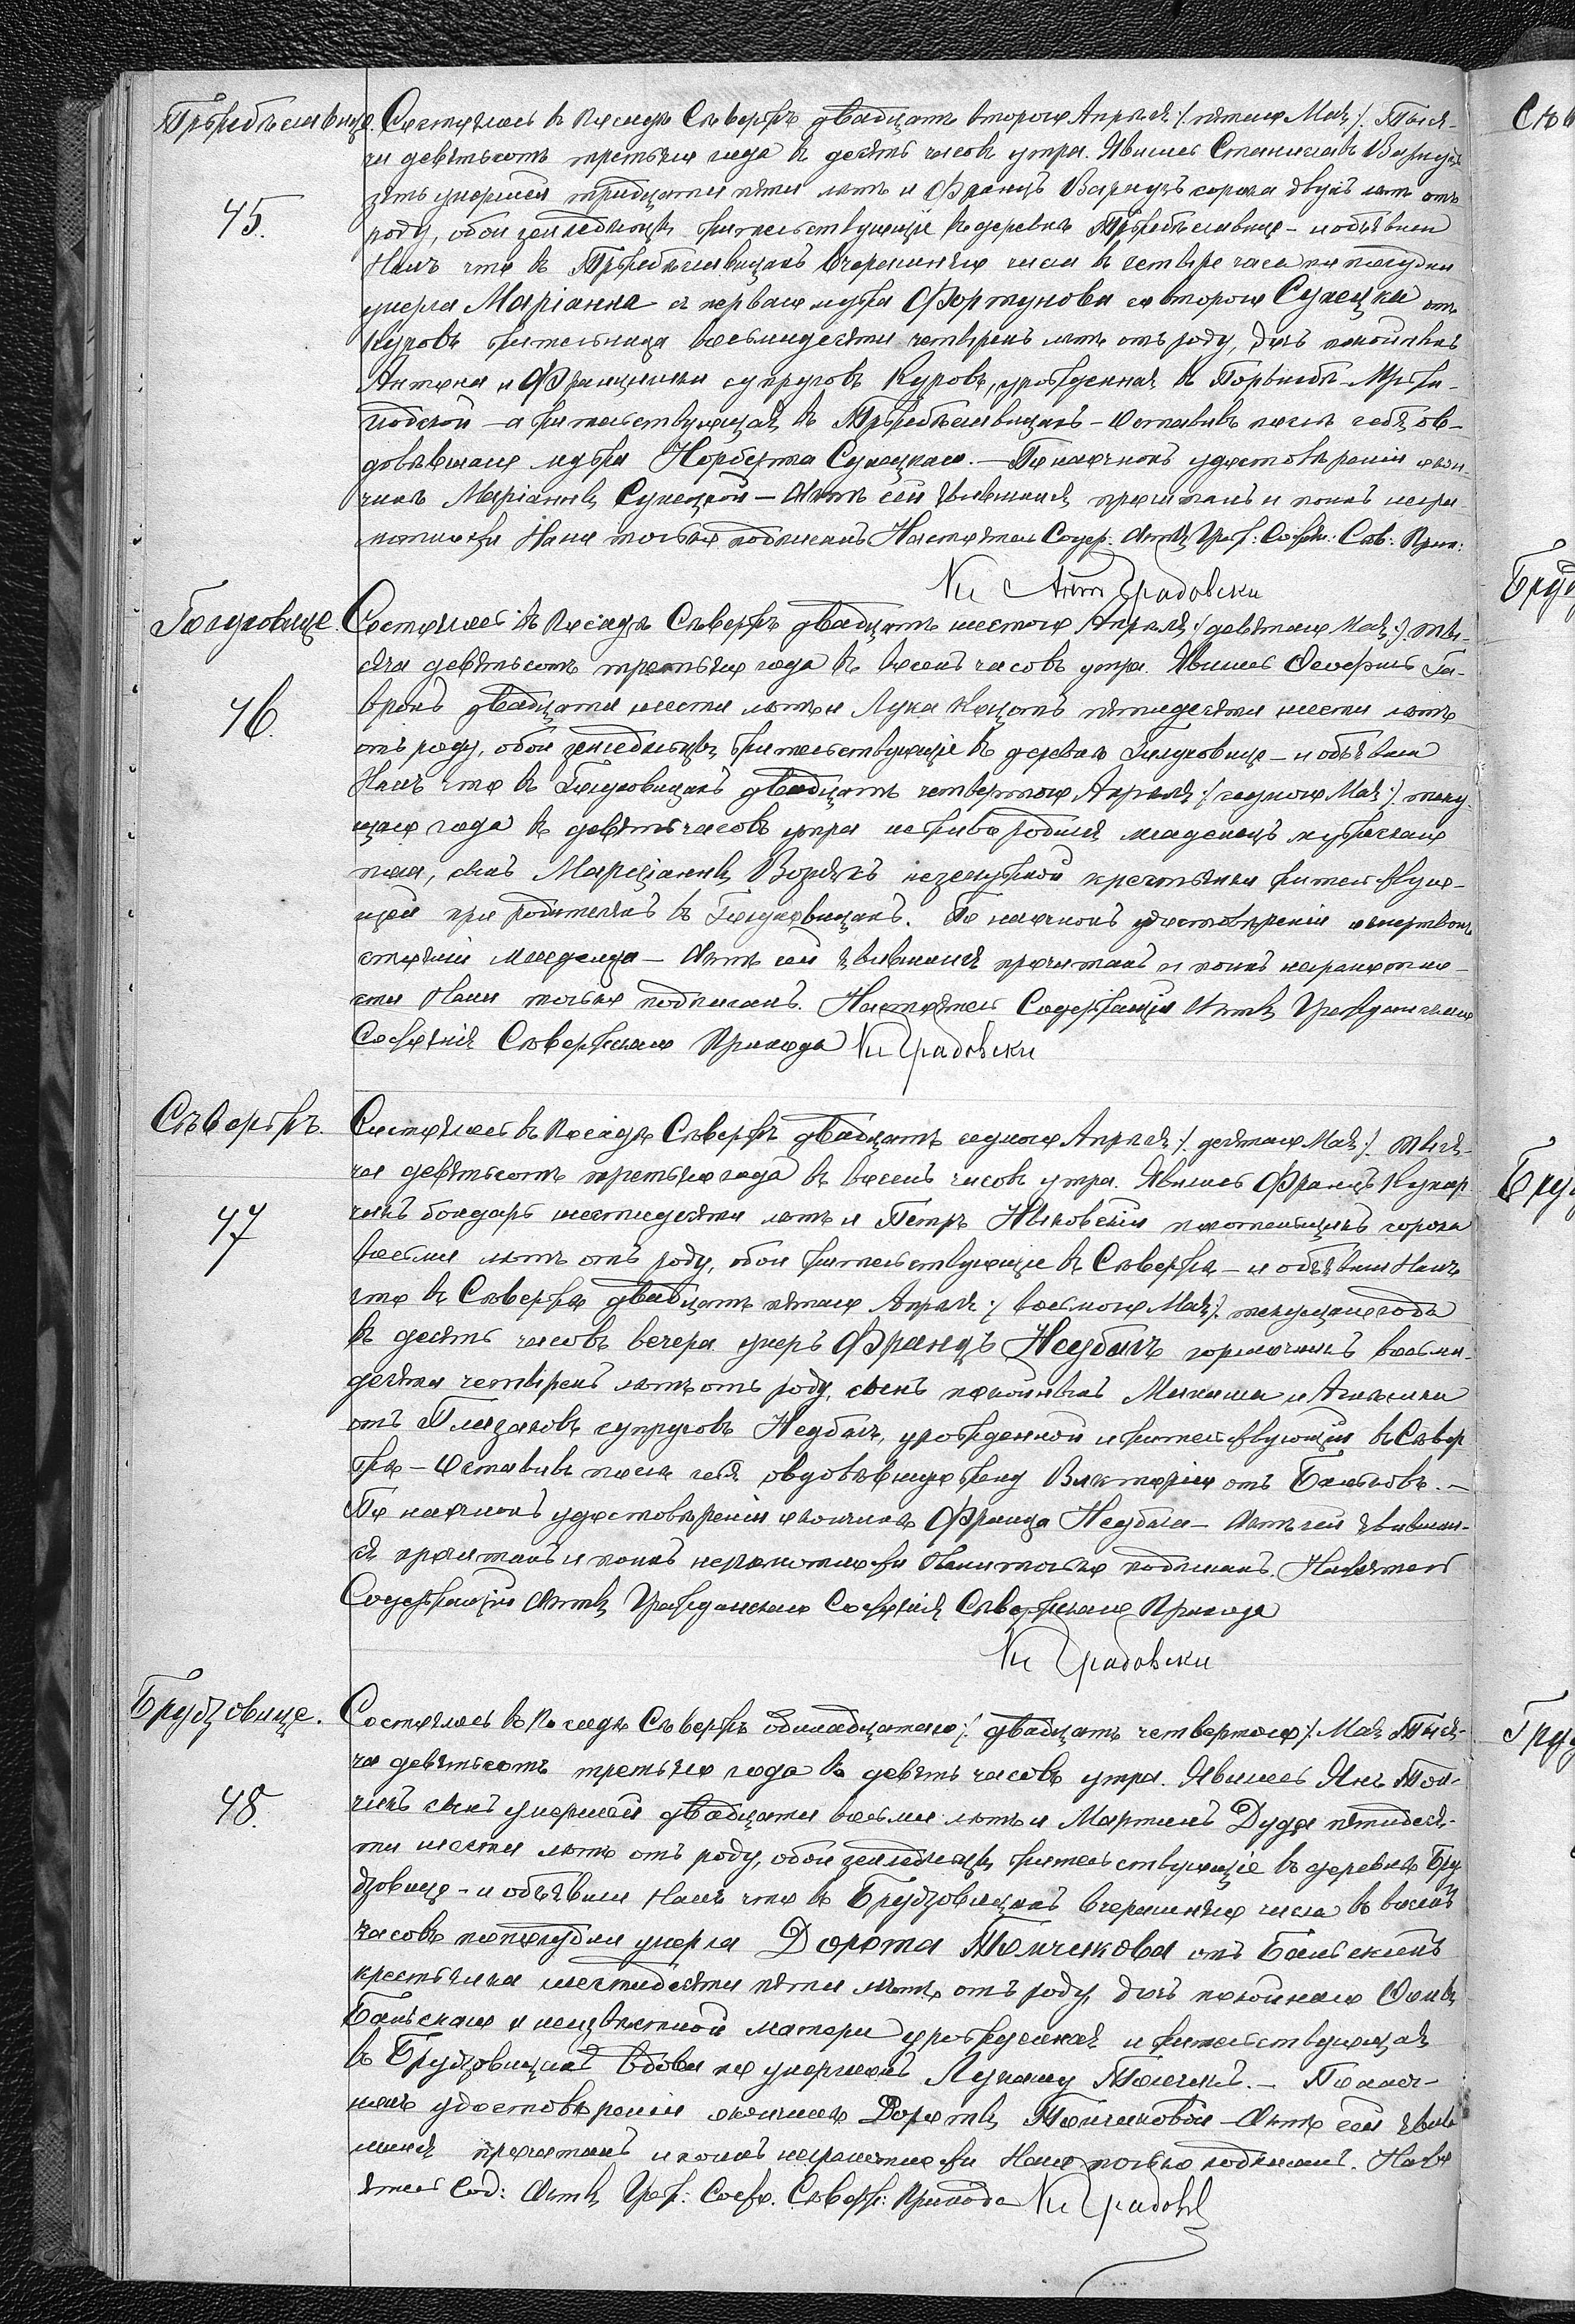 Пржибыславице. Состоялось въ посадѣ Сѣвержъ двадцать второго Апрѣля /: пятаго Мая :/ Тыся-
ча девятьсотъ третьяго года въ десять часовъ утра. Явились Станиславъ
зять умершей тридцати пяти лѣтъ и Францъ сорока двухъ лѣтъ отъ
45.
роду, обои земледѣльцы, жительствующіе въ деревнѣ Пржибыславице – и объявили
Намъ что въ Пржибыславицахъ вчерашняго числа въ четыре часа по полудни
умерла Маріанна съ перваго мужа Фортунова со второго Сулецка отъ
Куровъ жительница восьмидесяти четырехъ лѣтъ отъ роду, дочь покойныхъ
Антона и Францишки супруговъ Куровъ, урожденная въ
а жительствующая въ Пржибыславицахъ – Оставивъ послѣ себя ов-
довѣвшаго мужа Норберта Сулецкаго. – По наочномъ удостовѣреніи о кон-
чинѣ Маріанны Сулецкой – Актъ сей явившимся прочитанъ и какъ негра-
мотные Нами только подписанъ Настоятель Содер: Акты Граж: Состоян: Сѣв: Прих:
Кс Ант Градовски
Голуховице. Состоялось въ Посадѣ Сѣвержъ двадцать шестого Апрѣля /: девятаго Мая :/ ты-
сяча девятьсотъ третьяго года въ восемь часовъ утра. Явились Га-
46.
вронъ двадцати шести лѣтъ и Лука Коцотъ пятидесяти шести лѣтъ
отъ роду, обои земледѣльцы, жительствующіе въ деревнѣ Голуховице – и объявили
Намъ что въ Голуховицахъ двадцать четвертого Апрѣля /: седмого Мая :/ теку-
щаго года въ девять часовъ утра неживо родился младенецъ мужескаго
пола, сынъ Марціанны Возрякъ незамужной крестьянки жительствую-
щей при родителяхъ въ Голуховицахъ. По наочномъ удостовѣреніи о мертвомъ
состояніи младенца – Актъ сей явившимся прочитанъ и какъ неграмотно-
сти Нами только подписанъ. Настоятель Содержащій Акты Гражданскаго
Состоянія Сѣвержскаго Прихода Кс Градовски
Сѣвержъ. Состоялось въ Посадѣ Сѣвержъ двадцать седмого Апрѣля /: десятаго Мая :/ тыся-
ча девятьсотъ третьяго года въ восемь часовъ утра. Явились Францъ Кухар-
47
чикъ бондарь шестидесяти лѣтъ и Петръ сорока
восьми лѣтъ отъ роду, обои жительствующіе въ Сѣвержѣ – и объявили Намъ
что въ Сѣвержѣ двадцать пятаго Апрѣля /: восьмого Мая :/ текущаго года
въ десять часовъ вечера умеръ Францъ Недбалъ горшечникъ восьми-
десяти четырехъ лѣтъ отъ роду, сынъ покойныхъ Михаила и Агнешки
отъ супруговъ Недбалъ, урожденной и жительствующій въ Сѣвер
жѣ – Оставивъ послѣ себя овдовѣвшую жену Викторію отъ Бальковъ. –
По наочномъ удостовѣреніи о кончинѣ Франца Недбала – Актъ сей явившим-
ся прочитанъ и какъ неграмотные Нами только подписанъ. Настоятель
Содержащій Акты Гражданскаго Состоянія Сѣвержскаго Прихода
Кс Градовски
Брудзовице. Состоялось въ Посадѣ Сѣвержъ одинадцатого /: двадцать четвертого :/ Мая Тыся-
ча девятьсотъ третьяго года въ девять часовъ утра. Явились Янъ Том-
48.
чикъ сынъ умершей двадцати восьми лѣтъ и Мартинъ Дуда пятидеся-
ти шести лѣтъ отъ роду, обои земледѣльцы, жительствующіе въ деревнѣ Бру
дзовице – и объявили Намъ что въ Брудзовицахъ вчерашняго числа въ восемь
часовъ по полудни умерла Дорота Томчикова отъ Бальскихъ
крестьянка шестидесяти пяти лѣтъ отъ роду, дочь покойнаго
Бальскаго и неизвѣстной матери урожденная и жительствующая
въ Брудзовицахъ вдова по умершемъ Томчикъ. – По наоч-
номъ удостовѣреніи о кончинѣ Дороты Томчиковой – Актъ сей явив
шимся прочитанъ и какъ неграмотные Нами только подписанъ. Насто
ятель Сод: Акты Граж: Состо. Сѣверж: Прихода Кс Градовск